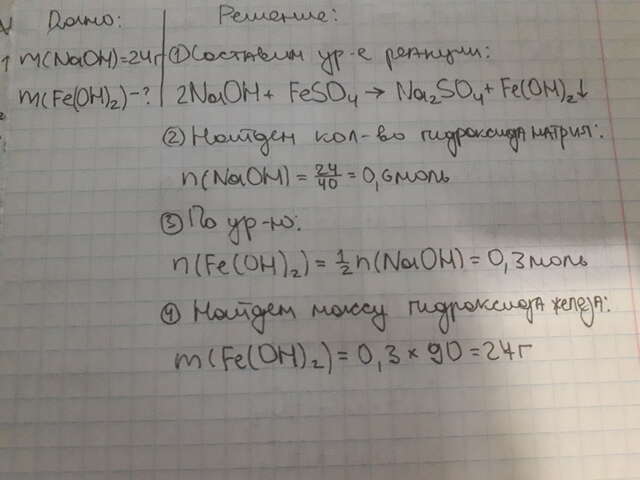 Дано:
Решение:
m(NaOH)=24г
① Составим ур-е реакции:
m(Fe(OH)₂)-?
2NaOH + FeSO₄ → Na₂SO₄ + Fe(OH)₂↓
② Найдем кол-во гидроксида натрия:
n(NaOH) = 24/40 = 0,6моль
③ По ур-ю:
n(Fe(OH)₂) = 1/2 n(NaOH) = 0,3моль
④ Найдем массу гидроксида железа:
m(Fe(OH)₂) = 0,3 × 90 = 27г